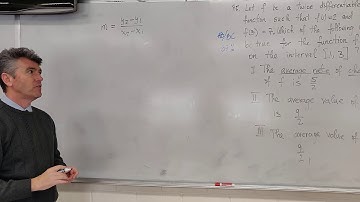 m = y₂-y₁ / x₂-x₁
Let f be a twice differentiable
function such that f(1)=2 and
f(3) = 7. Which of the following
be true for the function f
on the interval [1, 3]
I. The average rate of
of f is 5/2
II The average value of
is 9/2
III The average value of
9/2